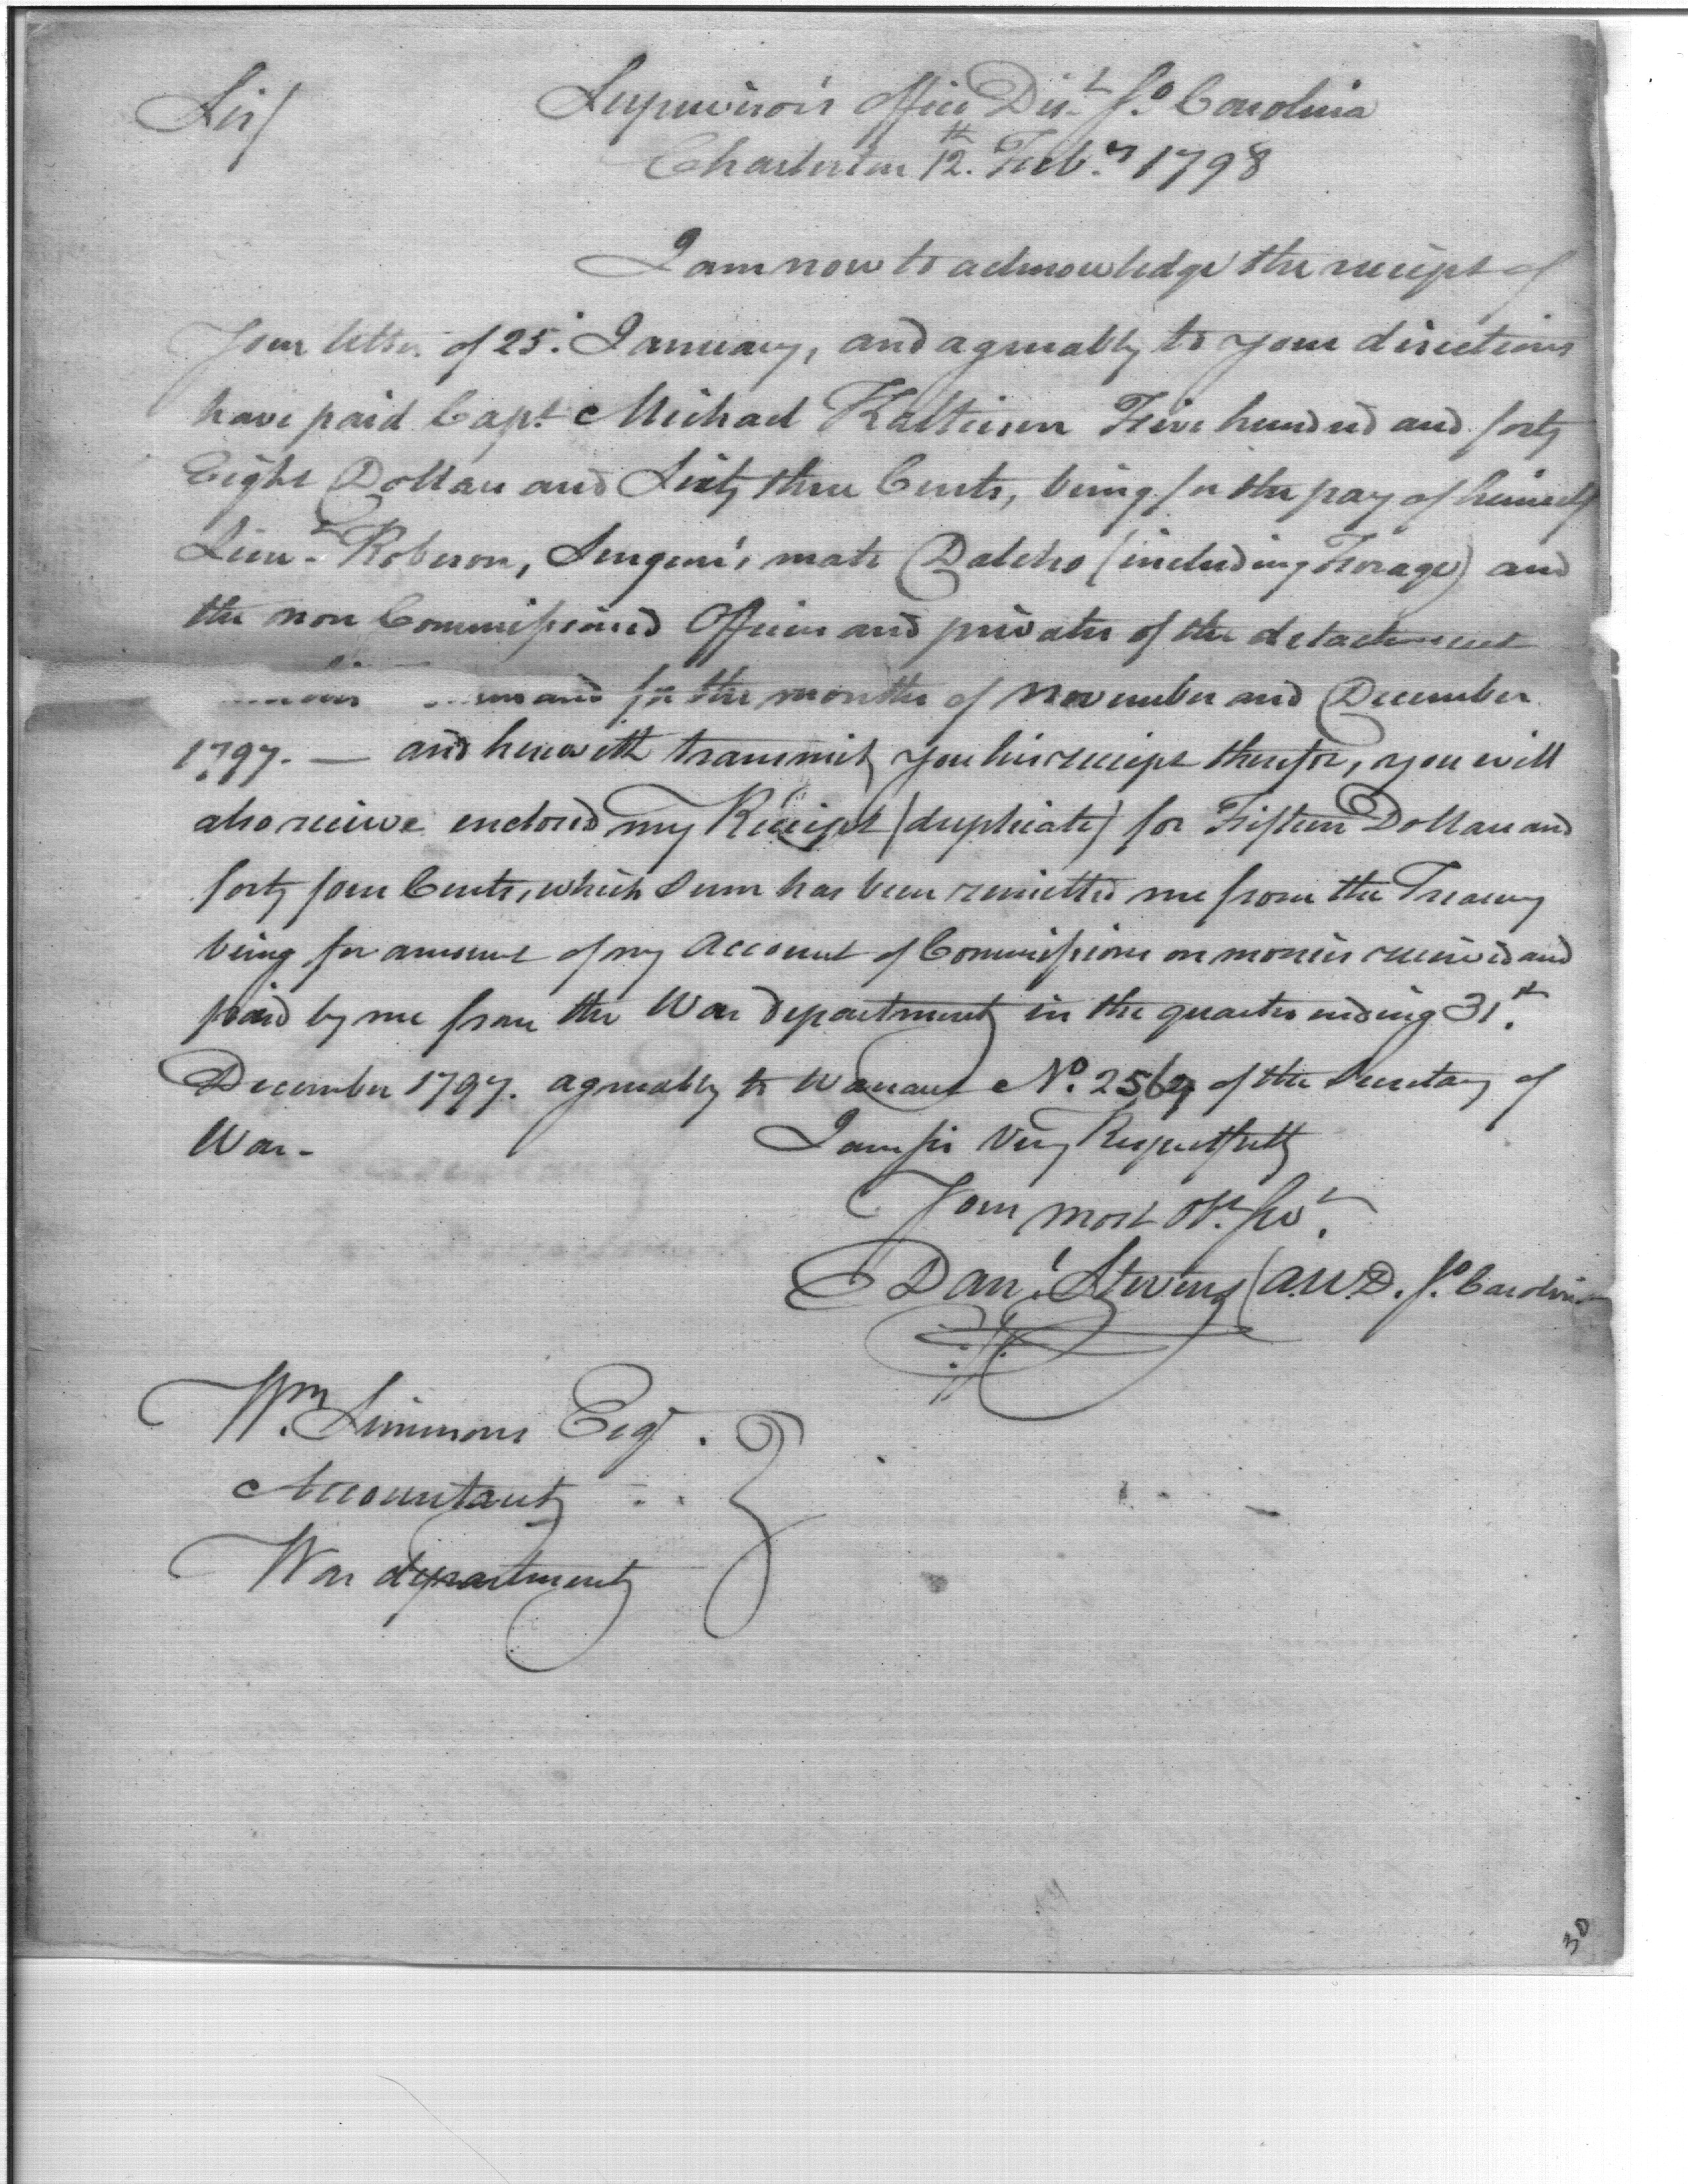 Sir/
Supervisor's Office Dist. So. Carolina
Charleston 12th. Feeb.y 1798
I am now to acknowledge the receipt of
Your letter of 25. January, and agreeably to your directions
have paid Capt. Michael Kalteisen Five hundred and forty
Eight Dollars and Sixty three Cents, being for the pay of himself
Lieut. Roberson, Surgeon's mate Dalcho (including Forage) and
the non Commissioned Officers and privates of the detachment
for the months of November and December
1797. — and herewith transmit you his receipt therefor, you will
also receive enclosed my Receipt (duplicate) for Fifteen Dollars and
forty four Cents, which Sum has been remitted me from the Treasury
being for amount of my Account of Commissions on monies received and
paid by me from the War department in the quarter ending 31st.
December 1797. agreeably to Warrant No. 2569 of the Secretary of
War -
I am sir Very Respectfully
Your most Obt. Servt.
Danl. Stevens (a.w.D. So. Carolina
Wm. Simmons Esqr.
Accountant
War department
30